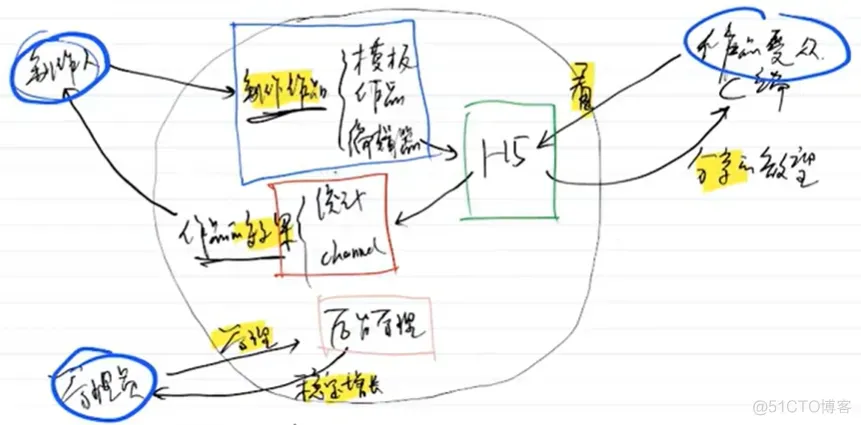 制作人
制作作品
模板
作品
编辑器
看
作品受众
C端
H5
分享
作品的效果
统计
channel
管理
后台管理
管理员
稳定增长
@51CTO博客